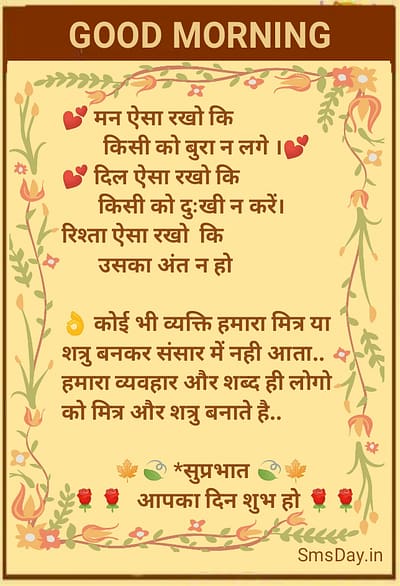 GOOD MORNING
💕 मन ऐसा रखो कि
किसी को बुरा न लगे ।💕
💕 दिल ऐसा रखो कि
किसी को दुःखी न करें।
रिश्ता ऐसा रखो कि
उसका अंत न हो
👌 कोई भी व्यक्ति हमारा मित्र या
शत्रु बनकर संसार में नही आता..
हमारा व्यवहार और शब्द ही लोगो
को मित्र और शत्रु बनाते है..
🍁 🍃 *सुप्रभात 🍃🍁
🌹🌹 आपका दिन शुभ हो 🌹🌹
SmsDay.in